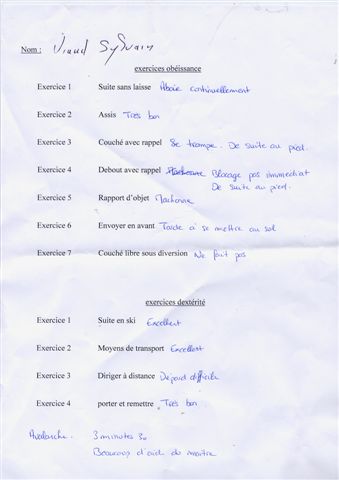 Nom : Viaud Sylvain
exercices obéissance
Exercice 1 Suite sans laisse Aboie continuellement
Exercice 2 Assis Très bon
Exercice 3 Couché avec rappel Se trompe. De suite au pied.
Exercice 4 Debout avec rappel Blocage pas immediat
De suite au pied.
Exercice 5 Rapport d'objet Machonne
Exercice 6 Envoyer en avant Tarde à se mettre au sol
Exercice 7 Couché libre sous diversion Ne fait pas
exercices dextérité
Exercice 1 Suite en ski Excellent
Exercice 2 Moyens de transport Excellent
Exercice 3 Diriger à distance Départ difficile
Exercice 4 porter et remettre Très bon
Avalanche. 3 minutes 30
Beaucoup d'aide du maître